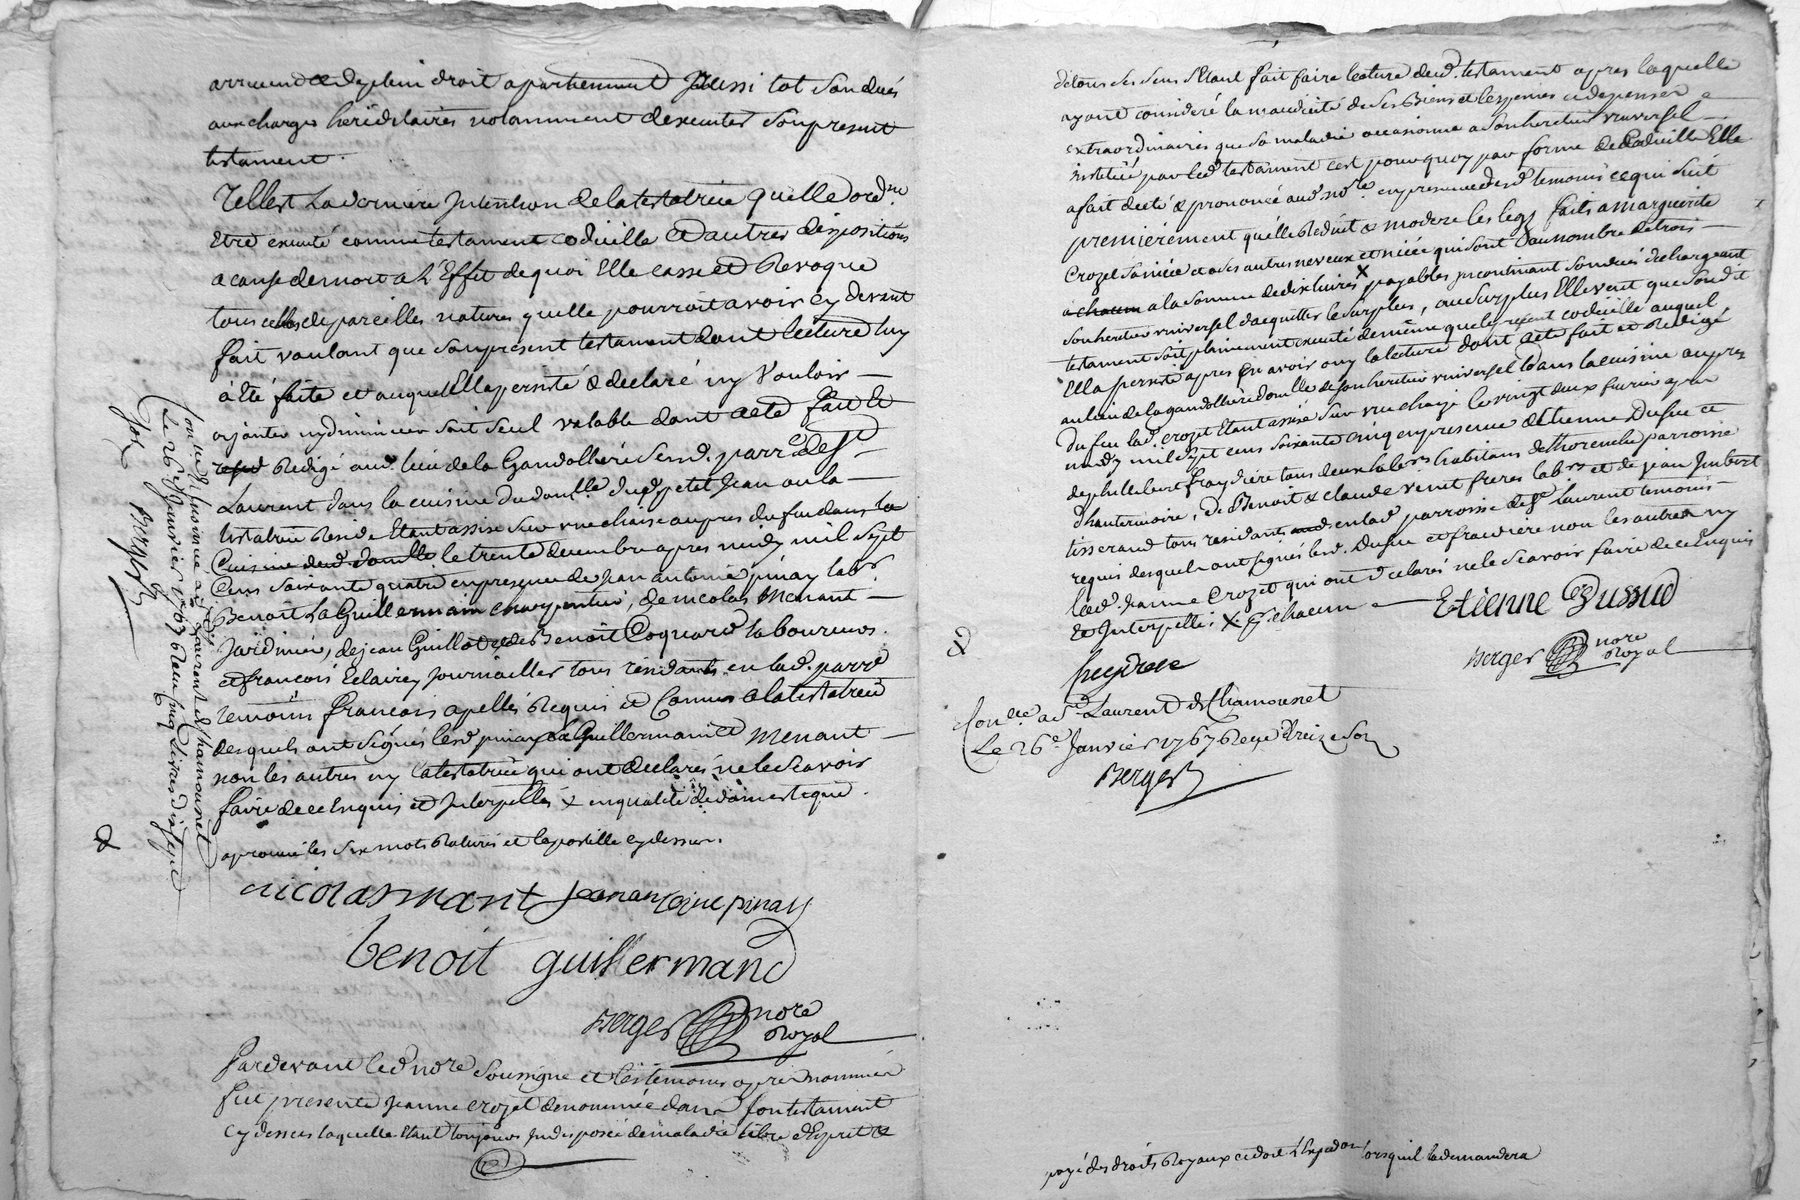 de plein droit apartiennent aussi tot son décés
aux charges héréditaires notamment dexecuter son present
testament.
Telle est La derniere Intention de la testatrice quelle ord.ne
Etre executé comme testament codicille et autres dispositions
a cause de mort a L'Effet de quoi Elle casse et Revoque
tous celles de pareilles natures quelle pourroit avoir cy devant
fait voulant que son present testament dont lecture luy
à Eté faite et auquel Ella persisté & declaré ny Vouloir
ajouter ny diminuer soit seul valable dont acte fait Et
Redigé aud. lieu de la Gandolliere Sus d. parr.e de St
Laurent dans la cuisine du domlle dud. petit Jean ou la
testatrice Reside Etant assise sur une chaise aupres du feu dans la
Cuisine dud. domlle le trente decembre apres midy mil Sept
Cens soixante quatre en presence de Jean antoine pinay labr.
Benoit La Guillermain charpentier, de nicolas Menant
Jardinier, de jean Guillot de Benoit Coquard laboureurs.
et francois Eclairey Journallier tous residants en lad. parre
temoins francois apellés Requis et Connus a la testatrice
desquels ont Signés lesd. pinay La Guillermain et Menant
non les autres ny la testatrice qui ont declarés ne le Scavoir
faire de ce Enquis et Interpellés x en qualité de domestique.
aprouvé les six mots Raturés et lapostille cy dessus.
nicolas mnant Jean antoine pinay
benoit guillermand
Berger nore
Royal
Pardevant led. nore Soussigné et les temoins apres nommés
fut presente Jeanne crozet denommée dans son testament
cy dessus laquelle Etant toujours Indisposée de maladie libre d'Esprit &
Con.lé & Insinué a St Laurent de Chamousset
le 26 Janvier 1767 Reçu cinq Livres dix sept
Sols Berger
de tous ses sens s'Etant fait faire lecture dud. testament apres laquelle
ayant consideré la modicité de Ses Biens et les peines & depenses
extraordinaires que sa maladie occasionne a Son heritier universel
institué par led. testament cest pourquoy par forme de Codicille Elle
a fait dicté & prononcé aud. nore. en presence desd. temoins ce qui suit
premierement quelle Reduit & modere les legs faits a marguerite
Crozet sa niéce et a ses autres neveux et niéce qui sont au nombre de trois
a chacun a la somme de dix livres x payables incontinant son décés dechargeant
son heritier universel dacquitter le surplus, au surplus Elle veut que son dit
testament soit pleinement executé de même que le present codicille auquel
Ella persisté apres En avoir ouy la lecture dont acte fait et Redigé
au lieu de la gandolliere domlle de son heritier universel dans la cuisine aupres
du feu lad. crozet Etant assise Sur une chaise le vingt deux fevrier apres
midy mil Sept cens soixante cinq en presence de Etienne Dussuc et
de philibert fraydiere tous deux labrs. habitans de paroisse
d'hauterivoire, de Benoit & claude venet freres labrs. et de jean Imbert
tisserand tous residants en lad. parroisse de St. laurent temoins
requis desquels ont signés lesd. Dussuc et fraidiere non les autres ny
lad. Jeanne Crozet qui ont declarés ne le Scavoir faire de ce Enquis
et Interpellés. x à chacun
Etienne Dussud
Berger nore
Royal
Con.lé a St Laurent de Chamousset
Le 26e Janvier 1767 Reçu Treize Sols
Berger
payé des droits Royaux ce dont l'Expedon lorsquil la demandera